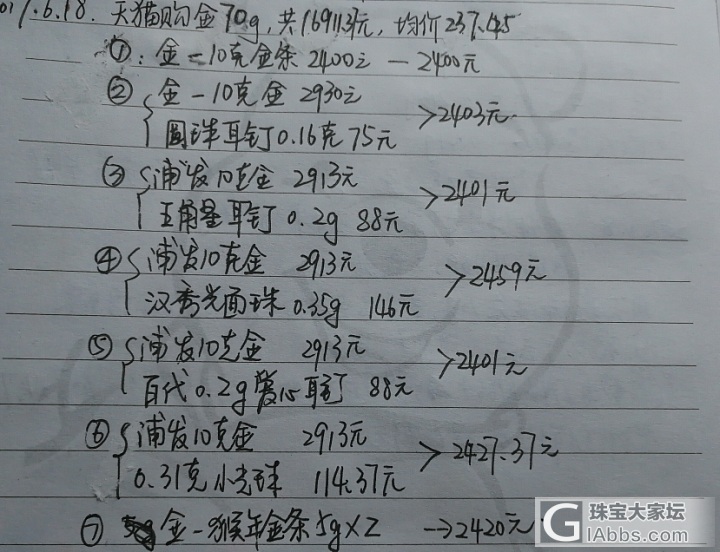 017.6.18. 天猫购金70g,共16911.37元,均价237.45
①:金一10克金条 2400元 — 2400元
② 金一10克金 2930元 >2403元
圆珠耳钉0.16克 75元
③ 浦发10克金 2913元 >2401元
五角星耳钉 0.2g 88元
④ 浦发10克金 2913元 >2459元
汉秀光面珠 0.35g 146元
⑤ 浦发10克金 2913元 >2401元
百代0.2g爱心耳钉 88元
⑥ 浦发10克金 2913元 >2427.37元
0.31克小光珠 114.37元
⑦ 金一猴年金条5g×2 →2420元
珠宝大家坛
iAbbs.com